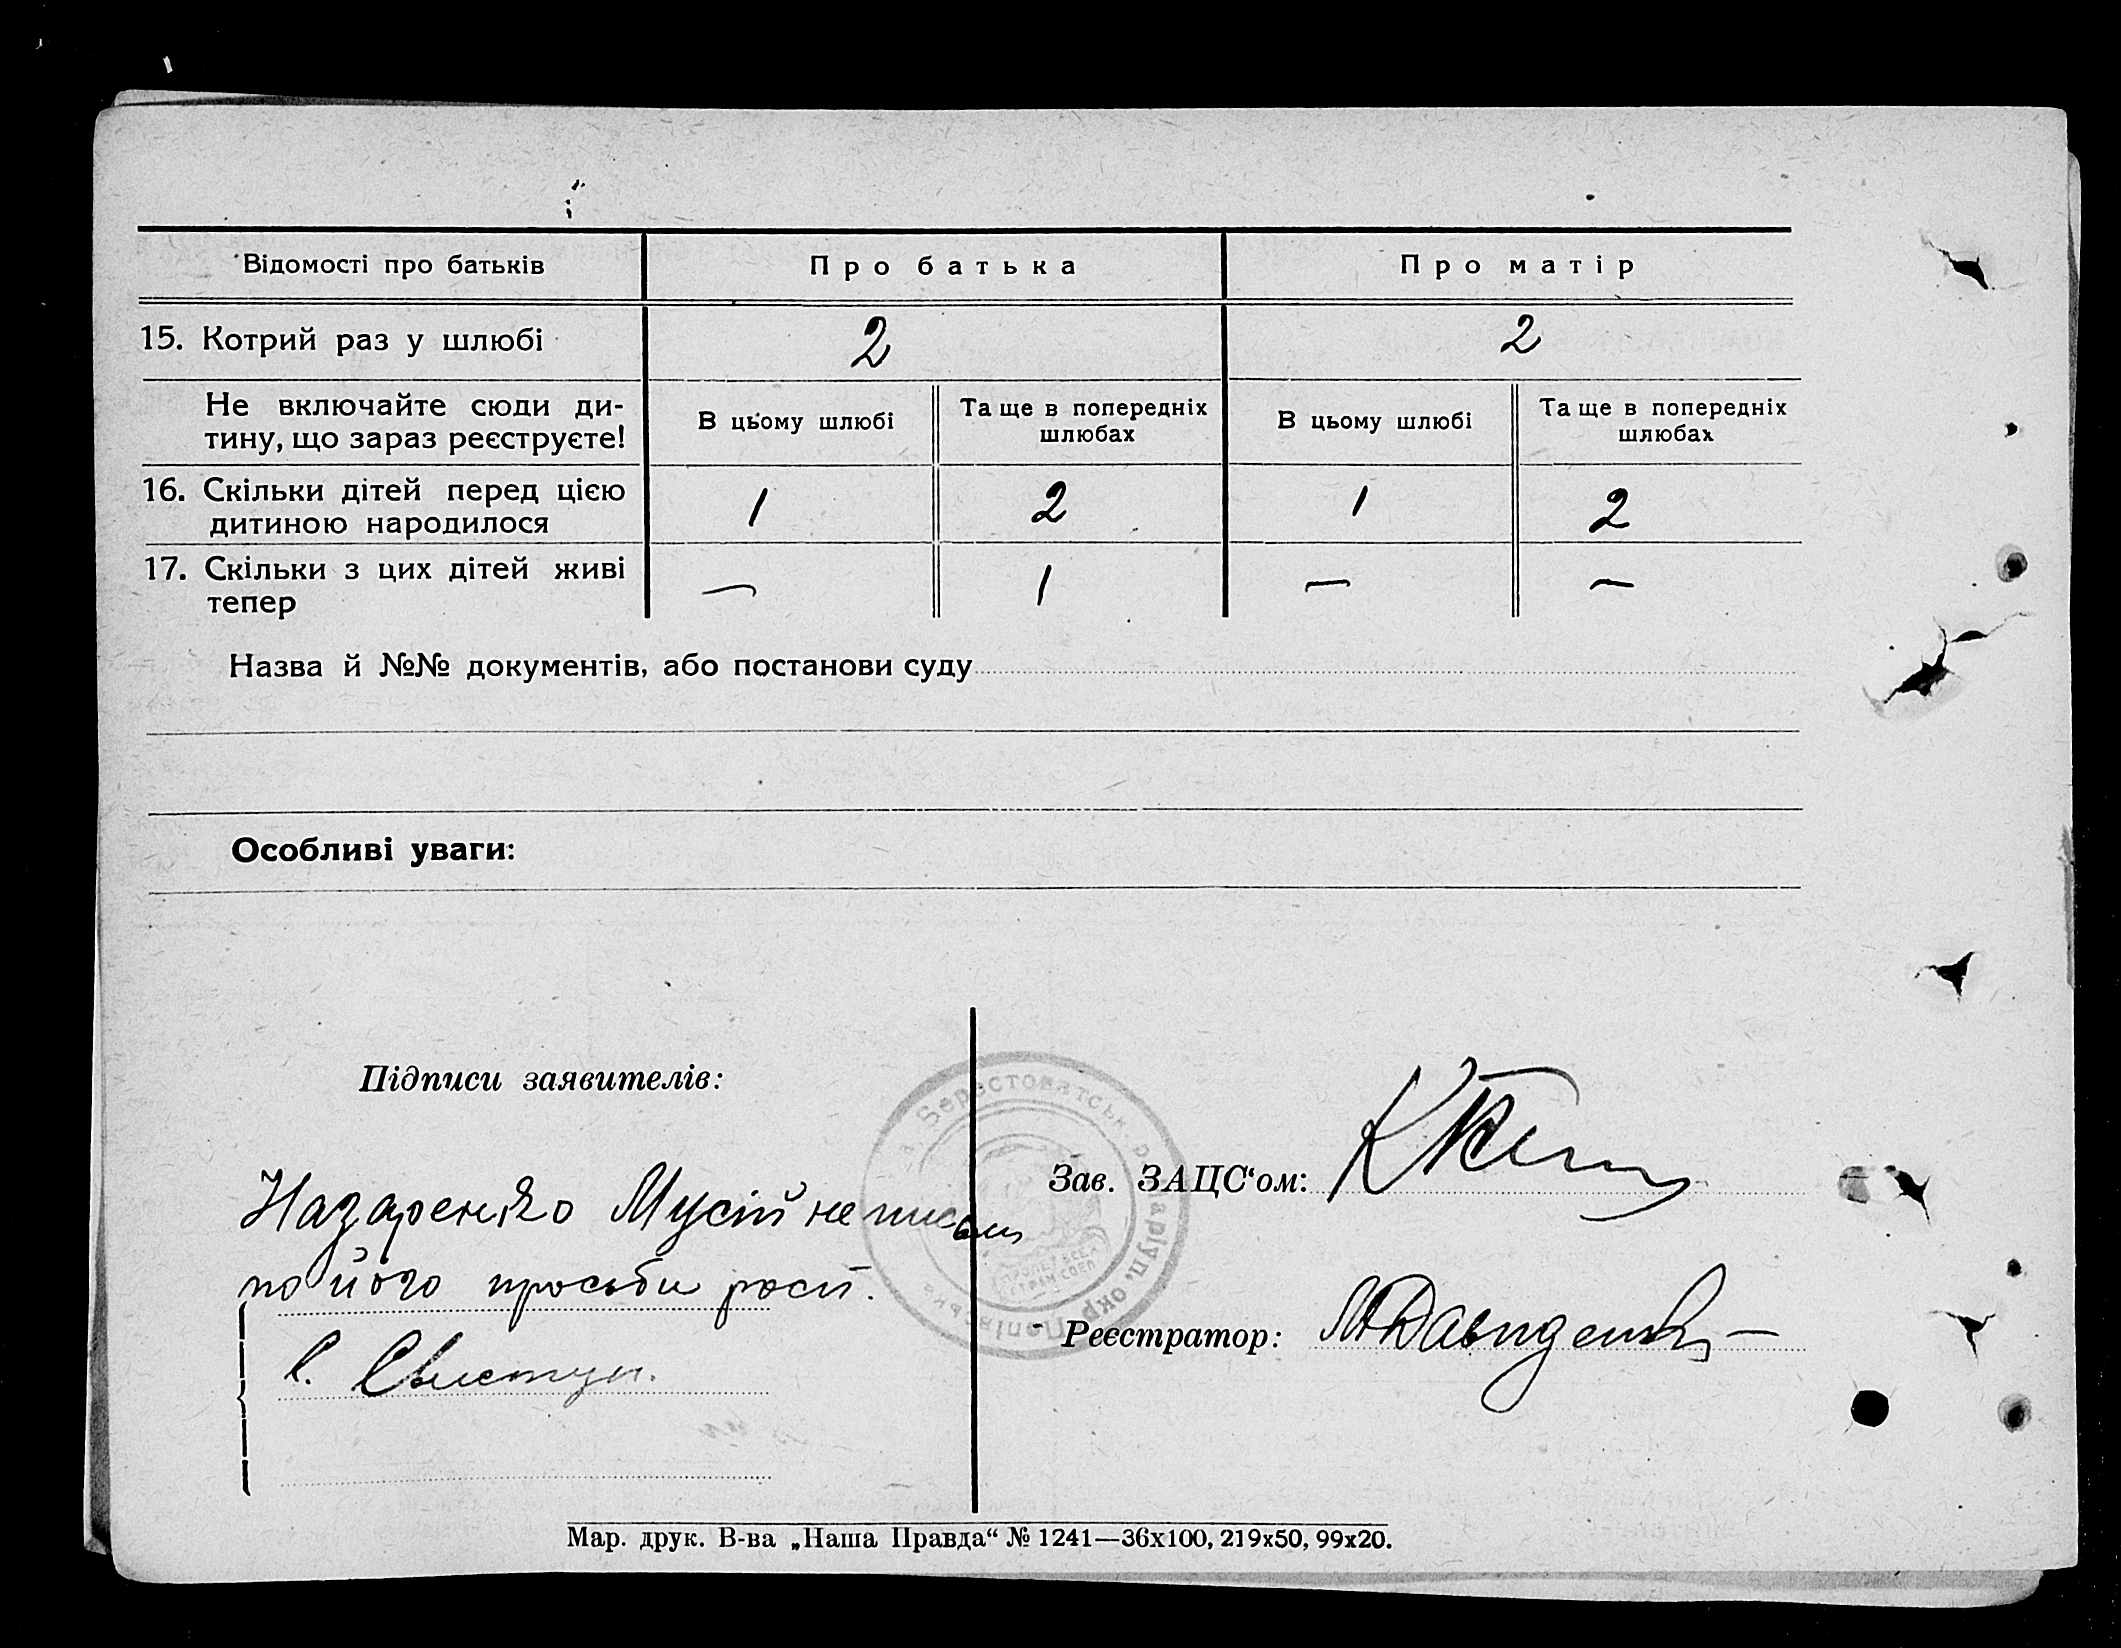 Відомості про батьків
Про батька
Про матір
15. Котрий раз у шлюбі
2
2
Не включайте сюди ди-
тину, що зараз реєструєте!
В цьому шлюбі
Та ще в попередніх
шлюбах
В цьому шлюбі
Та ще в попередніх
шлюбах
16. Скільки дітей перед цією
дитиною народилося
1
2
1
2
17. Скільки з цих дітей живі
тепер
—
1
—
—
Назва й №№ документів, або постанови суду
Особливі уваги:
Підписи заявителів:
Назаренко Мусій неписьм
по його просьби росп.
С. Свистун.
Берестоватськ
Маріуп. окр.
Зав. ЗАЦС‘ом:
Реєстратор: МДавиденко
Мар. друк. В-ва „Наша Правда“ № 1241—36х100, 219х50, 99х20.